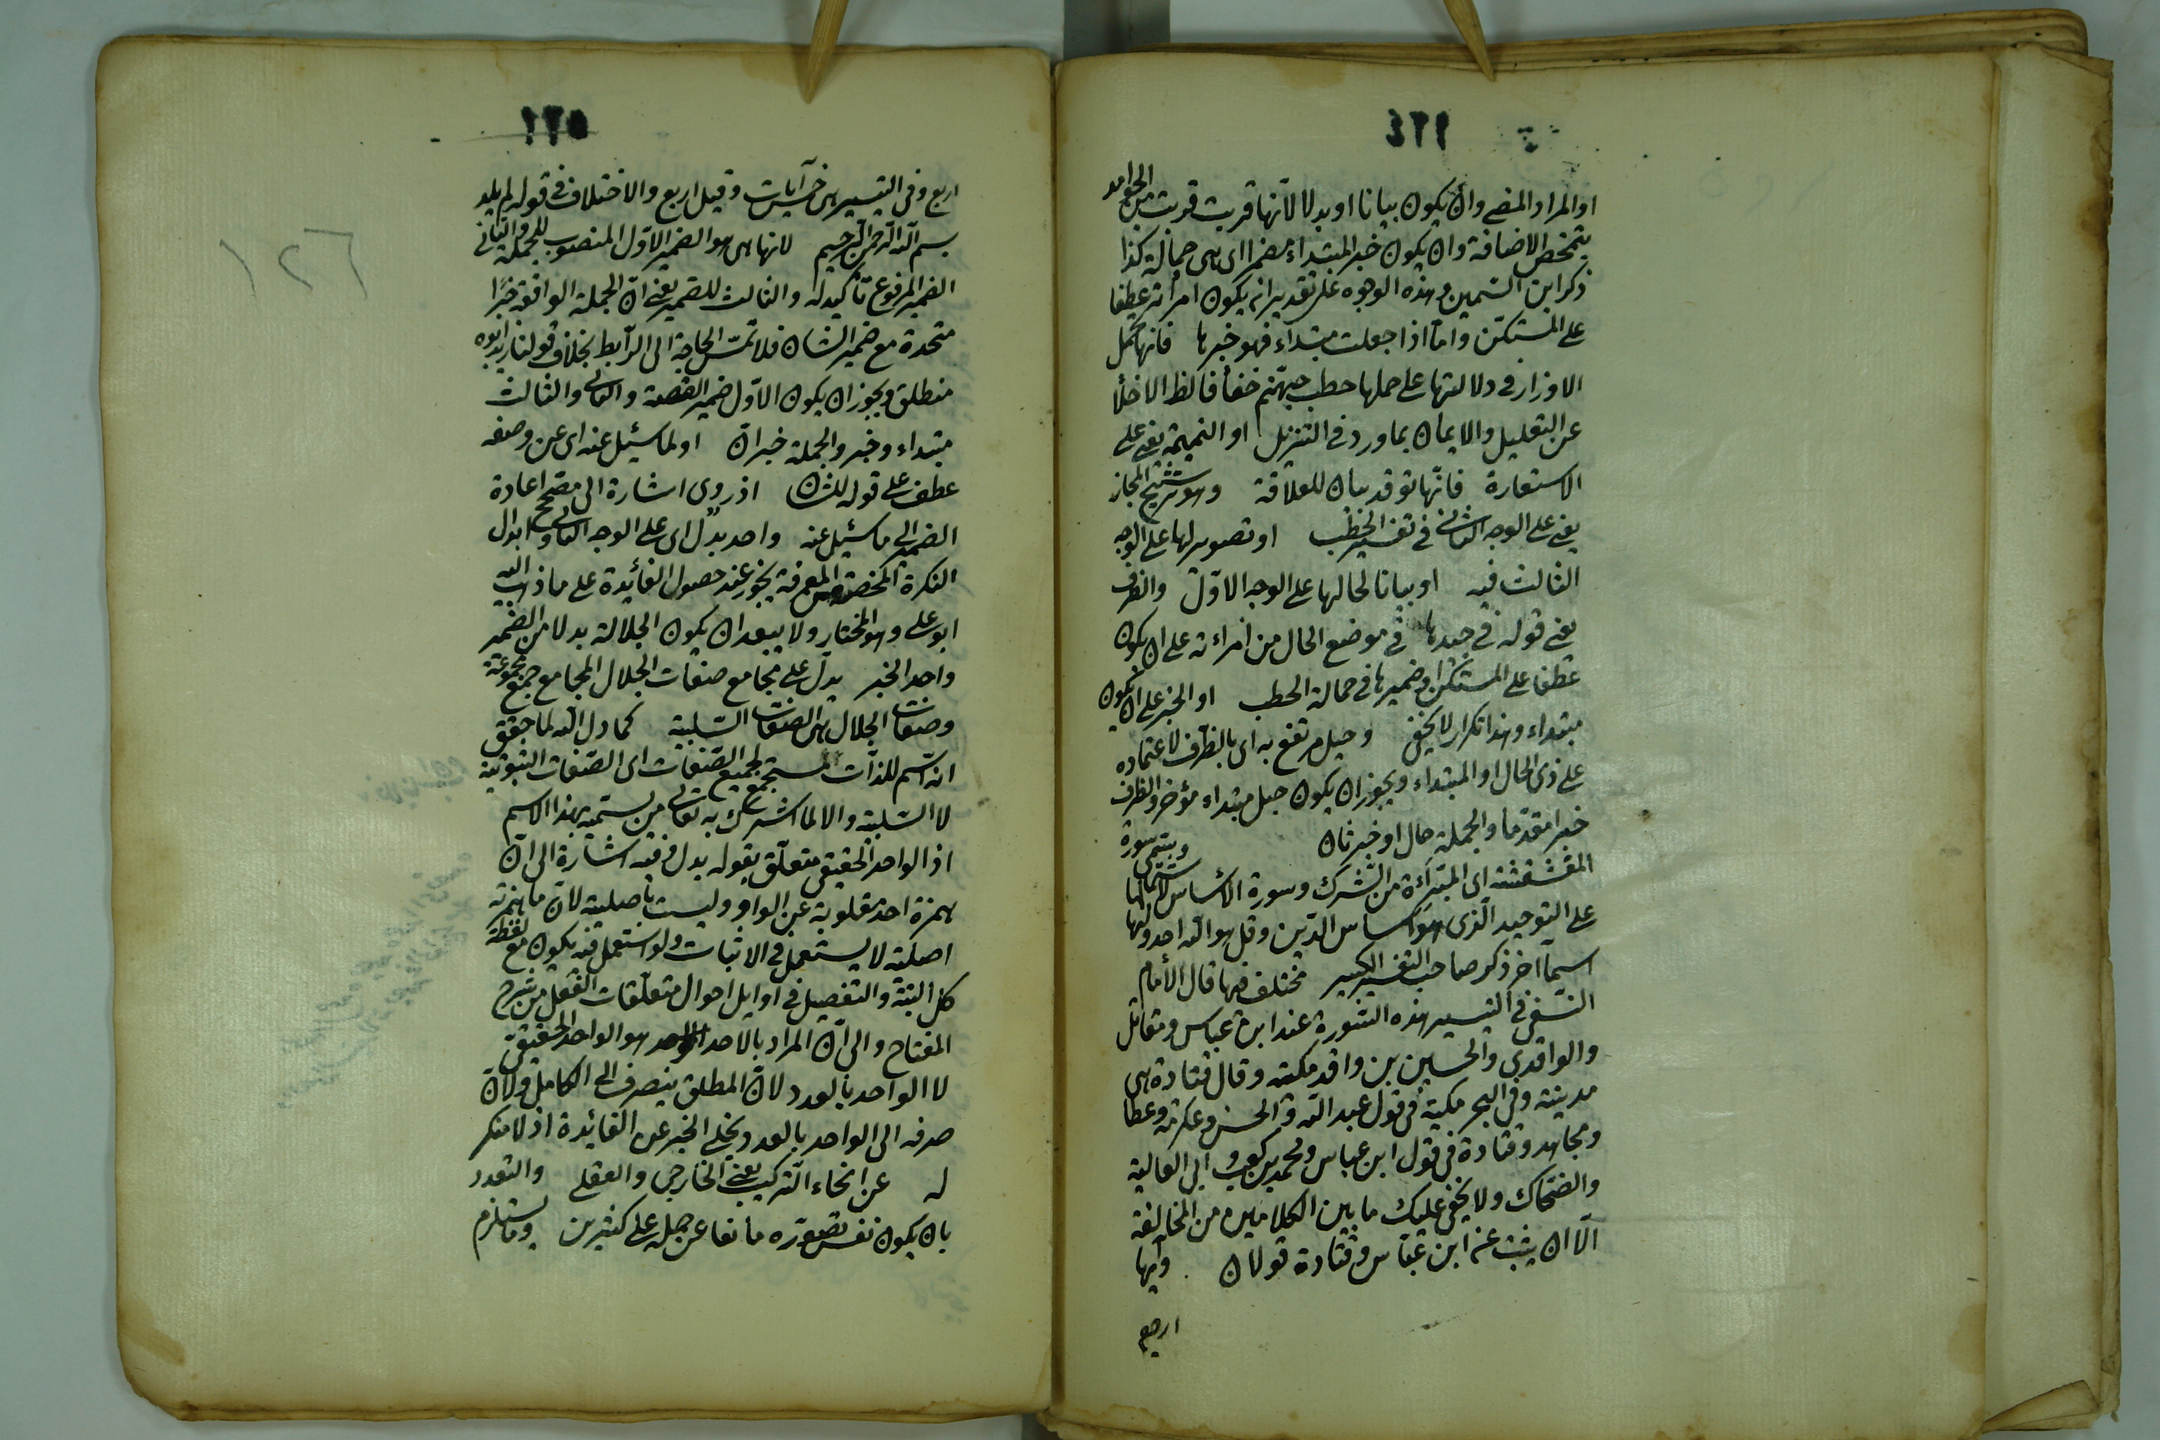 ١٢٤
او المراد المضى وان يكون بيانا او بدلا لانها قريت قريت من الجوامد
بتمحض الاضافة وان يكون خبر المبتداء مضمرا اى هى حمالة كذا
ذكر ابن السّمين وهذه الوجوه على تقدير انه يكون امرأته عطفا
على المستكنّ وامّا اذا جعلت مبتداء فهو خبرها فانها تحمل
الاوزار فى دلالتها على حملها حطب جهنّم
عن التعليل والايمان بما ورد فى التنزيل او النميمة يعنى على
الاستعارة فانّها توقد بيان للعلاقة وهو ترشيح المجاز
يعنى على الوجه الثانى فى تفسير الحطب او تصوير لها على الوجه
الثالث فيه او بيانا لحالها على الوجه الاوّل والظرف
يعنى قوله فى جيدها فى موضع الحال من امراءته على ان يكون
عطفا على المستكن او ضميرها فى حمالة الحطب او الخبر على ان يكون
مبتداء وهذا تكرار لا يخفى وحبل مرتفع به اى بالظرف لاعتماده
على ذى الحال او المبتداء ويجوز ان يكون حبل مبتداء مؤخر والظرف
خبرا مقدّما والجملة حال او خبر ثان وتسمّى سورة
المقشقشة اى المبرّاءة من الشّرك وسورة الاساس لاشتمالها
على التوحيد الّذى هو اساس الدّين وقل هو الله احد ولها
اسما آخر ذكر صاحب التفسير الكبير مختلف فيها قال الأمام
النّسفى فى التيسير هذه السّورة عند ابن عباس ومقاتل
والواقدى والحسين بن واقد مكيّة وقال قتادة هى
مدينة وفى البحر مكيّة فى قول عبد الله والحسن وعكرمة وعطا
ومجاهد وقتادة فى قول ابن عباس ومحمد بن كعب وابى العالية
والضّحاك ولا يخفى عليك ما بين الكلامين من المخالفة
الّا ان يثبت عنه ابن عبّاس وقتادة قولان وآيها
اربع
١٢٥
١٢٦
اربع وفى التيسير هى خمس آيات وقيل اربع والاختلاف فى قوله لم يلد
بسم الله الرّحمن الرّحيم لانها هى هو الضمير الاوّل المنصوب للجملة والثانى
الضمير المرفوع تأكيد له والثالث للضمير يعنى انّ الجملة الواقعة خبرًا
متحدة مع ضمير الشان فلا تمسّ الحاجة الى الرّابط بخلاف قولنا زيد ابوه
منطلق ويجوز ان يكون الاوّل ضمير القصة والثانى والثالث
مبتداء وخبر والجملة خبر انّ او لما سئيل عنه اى عن وصفه
عطف على قوله للشان اذ روى اشارة الى مصحّح اعادة
الضمير الى ما سئيل عنه واحد بدل اى على الوجه الثانى وابدال
النكرة المحضة من المعرفة يجوز عند حصول الفائدة على ما ذهب اليه
ابو على وهو المختار ولا يبعد ان يكون الجلالة بدلا من الضمير
واحد الخبر يدلّ على مجامع صفات الجلال المجامع جمع مجموعة
وصفات الجلال هى الصفات السّلبيّة كما دل الله لما حقق
انه اسم للذات المستجمع لجميع الصّفات اى الصّفات الثبوتيّة
لا السّلبيّة والا لما اشرك به تعالى من يسمّيه بهذا الاسم
اذ الواحد الحقيقى متعلّق بقوله يدل وفيه اشارة الى انّ
همزة احد مقلوبة عن الواو وليست باصلية لانّ ما همزته
اصليّة لا يستعمل فى الاثبات ولو استعمل فيه يكون مع لفظة
كل البتة والتفصيل فى اوايل احوال متعلّقات الفعل من شرح
المفتاح والى انّ المراد بالاحد الواحد هو الواحد الحقيقىّ
لا الواحد بالعدد لانّ المطلق ينصرف الى الكامل ولانّ
صرفه الى الواحد بالعدد يخلى الخبر عن الفائيدة اذ لا منكر
له عن انحاء التّركيب يعنى الخارجى والعقلى والتعدد
بان يكون نفس تصوّره مانعا عن حمله على كثيرين وما يستلزم